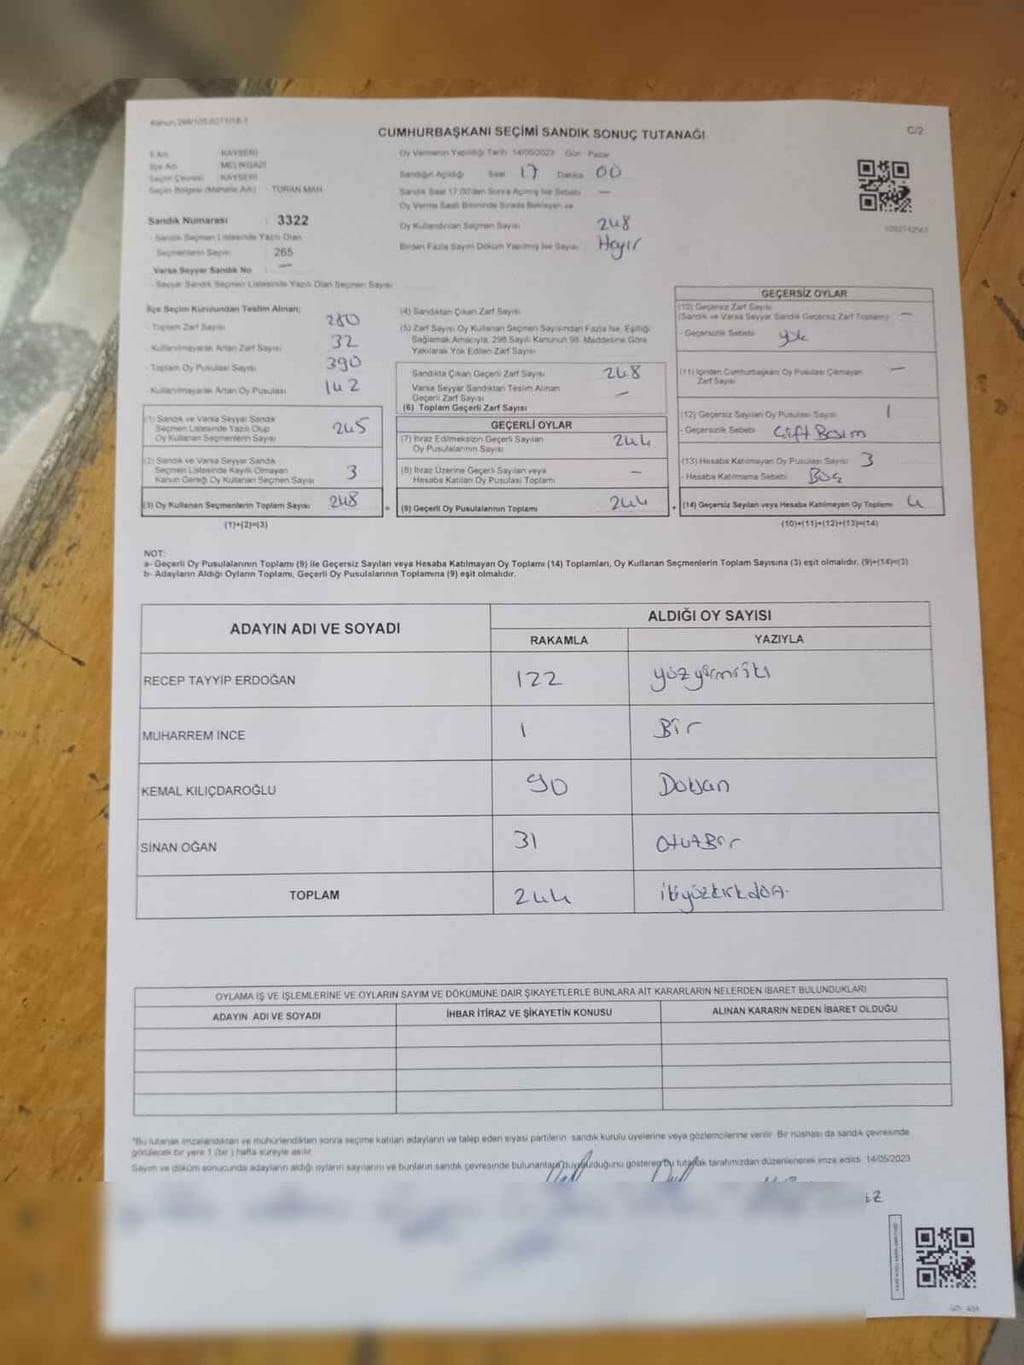 Kanun 298/105,6271/16-1
CUMHURBAŞKANI SEÇİMİ SANDIK SONUÇ TUTANAĞI
C/2
İl Adı KAYSERİ
İlçe Adı MELİKGAZİ
Seçim Çevresi KAYSERİ
Seçim Bölgesi (Mahalle Adı) : TURAN MAH.
Sandık Numarası : 3322
Sandık Seçmen Listesinde Yazılı Olan
Seçmenlerin Sayısı 265
Varsa Seyyar Sandık No : —
- Seyyar Sandık Seçmen Listesinde Yazılı Olan Seçmen Sayısı
Oy Vermenin Yapıldığı Tarih 14/05/2023 Gün Pazar
Sandığın Açıldığı Saat 17 Dakika 00
Sandık Saat 17:00'den Sonra Açılmış İse Sebebi —
Oy Verme Saati Bitiminde Sırada Bekleyen ve
Oy Kullandırılan Seçmen Sayısı 248
Birden Fazla Sayım Döküm Yapılmış İse Sayısı Hayır
İlçe Seçim Kurulundan Teslim Alınan;
- Toplam Zarf Sayısı 280
- Kullanılmayarak Artan Zarf Sayısı 32
- Toplam Oy Pusulası Sayısı 390
- Kullanılmayarak Artan Oy Pusulası 142
(1) Sandık ve Varsa Seyyar Sandık
Seçmen Listesinde Yazılı Olup
Oy Kullanan Seçmenlerin Sayısı 245
(2) Sandık ve Varsa Seyyar Sandık
Seçmen Listesinde Kayıtlı Olmayan
Kanun Gereği Oy Kullanan Seçmen Sayısı 3
(3) Oy Kullanan Seçmenlerin Toplam Sayısı 248
(1)+(2)=(3)
(4) Sandıktan Çıkan Zarf Sayısı
(5) Zarf Sayısı Oy Kullanan Seçmen Sayısından Fazla İse, Eşitliği
Sağlamak Amacıyla, 298 Sayılı Kanunun 98. Maddesine Göre
Yakılarak Yok Edilen Zarf Sayısı
Sandıkta Çıkan Geçerli Zarf Sayısı 248
Varsa Seyyar Sandıktan Teslim Alınan
Geçerli Zarf Sayısı —
(6) Toplam Geçerli Zarf Sayısı
GEÇERLİ OYLAR
(7) İtiraz Edilmeksizin Geçerli Sayılan
Oy Pusulalarının Sayısı 244
(8) İtiraz Üzerine Geçerli Sayılan veya
Hesaba Katılan Oy Pusulası Toplamı —
=
(9) Geçerli Oy Pusulalarının Toplamı 244
+
GEÇERSİZ OYLAR
(10) Geçersiz Zarf Sayısı
(Sandık ve Varsa Seyyar Sandık Geçersiz Zarf Toplamı) —
- Geçersizlik Sebebi yok
(11) İçinden Cumhurbaşkanı Oy Pusulası Çıkmayan
Zarf Sayısı —
(12) Geçersiz Sayılan Oy Pusulası Sayısı 1
- Geçersizlik Sebebi Çift Basım
(13) Hesaba Katılmayan Oy Pusulası Sayısı 3
- Hesaba Katılmama Sebebi Boş
(14) Geçersiz Sayılan veya Hesaba Katılmayan Oy Toplamı 4
(10)+(11)+(12)+(13)=(14)
NOT:
a- Geçerli Oy Pusulalarının Toplamı (9) ile Geçersiz Sayılan veya Hesaba Katılmayan Oy Toplamı (14) Toplamları, Oy Kullanan Seçmenlerin Toplam Sayısına (3) eşit olmalıdır. (9)+(14)=(3)
b- Adayların Aldığı Oyların Toplamı, Geçerli Oy Pusulalarının Toplamına (9) eşit olmalıdır.
ADAYIN ADI VE SOYADI
ALDIĞI OY SAYISI
RAKAMLA YAZIYLA
RECEP TAYYİP ERDOĞAN 122 yüzyirmiiki
MUHARREM İNCE 1 Bir
KEMAL KILIÇDAROĞLU 90 Doksan
SİNAN OĞAN 31 OtuzBir
TOPLAM 244 ikiyüzkırkdört
OYLAMA İŞ VE İŞLEMLERİNE VE OYLARIN SAYIM VE DÖKÜMÜNE DAİR ŞİKAYETLERLE BUNLARA AİT KARARLARIN NELERDEN İBARET BULUNDUKLARI
ADAYIN ADI VE SOYADI İHBAR İTİRAZ VE ŞİKAYETİN KONUSU ALINAN KARARIN NEDEN İBARET OLDUĞU
*Bu tutanak imzalandıktan ve mühürlendikten sonra seçime katılan adayların ve talep eden siyasi partilerin sandık kurulu üyelerine veya gözlemcilerine verilir. Bir nüshası da sandık çevresinde
görülecek bir yere 1 (bir) hafta süreyle asılır.
Sayım ve döküm sonucunda adayların aldığı oyların sayılarını ve bunların sandık çevresinde bulunanlara duyurulduğunu gösteren bu tutanak tarafımızdan düzenlenerek imza edildi. 14/05/2023